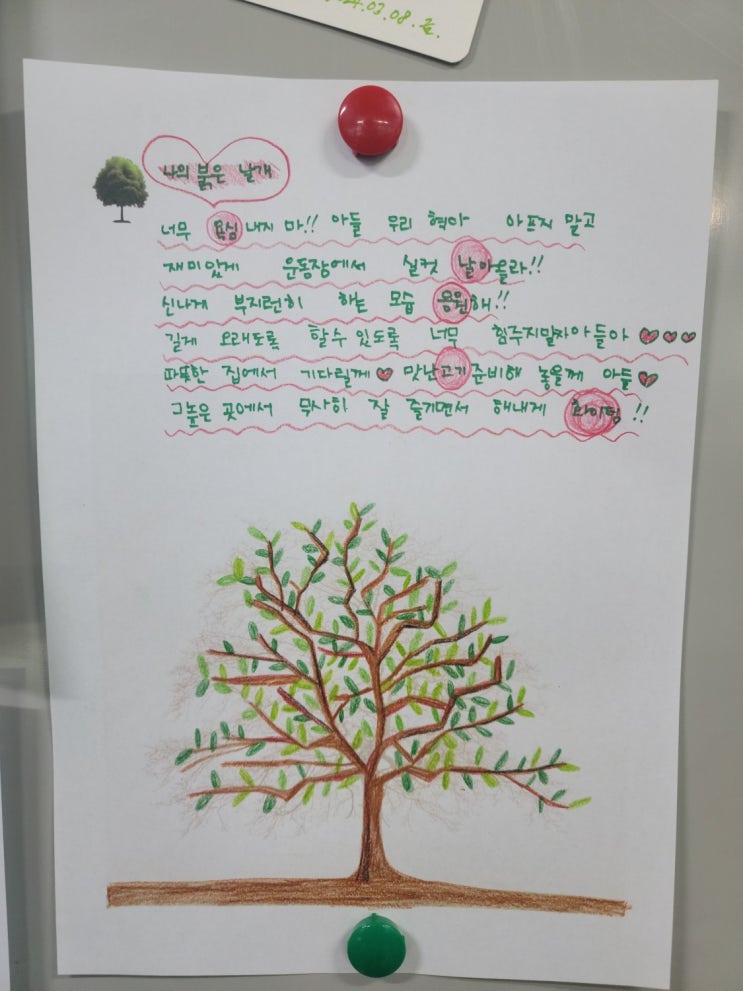 24.03.08.금.
나의 붉은 날개
너무 욕심 내지 마!! 아들 우리 혁아 아프지 말고
재미있게 운동장에서 실컷 날아올라!!
신나게 부지런히 하는 모습 응원해!!
길게 오래도록 할수 있도록 너무 힘주지말자아들아
따뜻한 집에서 기다릴께 맛난고기준비해 놓을께 아들
그높은 곳에서 무사히 잘 즐기면서 해내게 화이팅!!